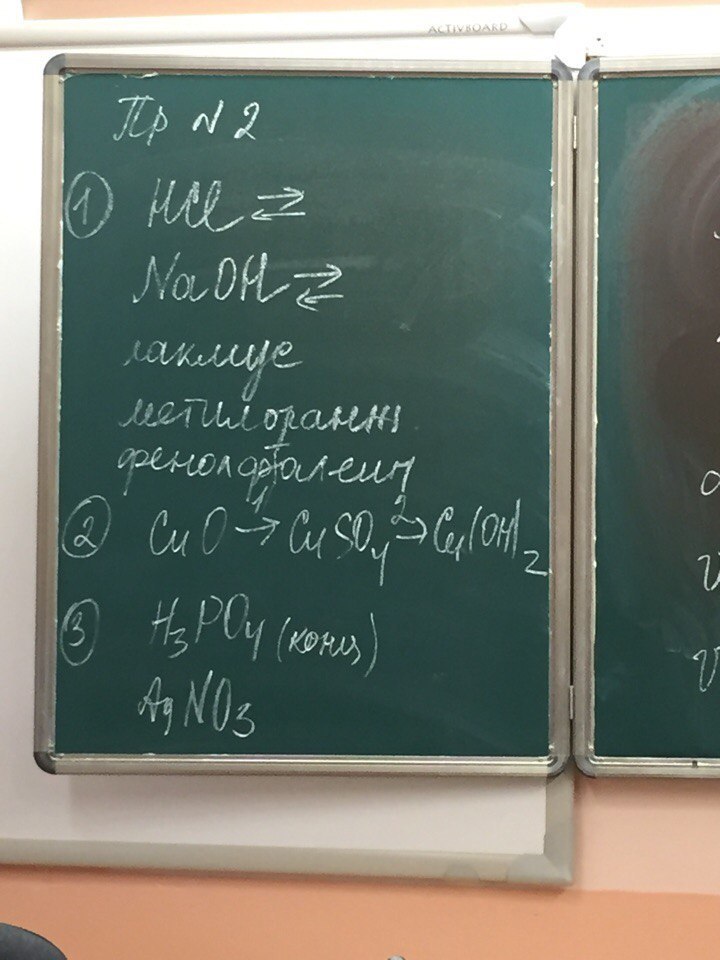 ACTIVBOARD
Пр N 2
① HCl ⇄
NaOH ⇄
лакмус
метилоранж
фенолфталеин
② CuO →¹ CuSO₄ →² Cu(OH)₂
③ H₃PO₄ (конц)
AgNO₃